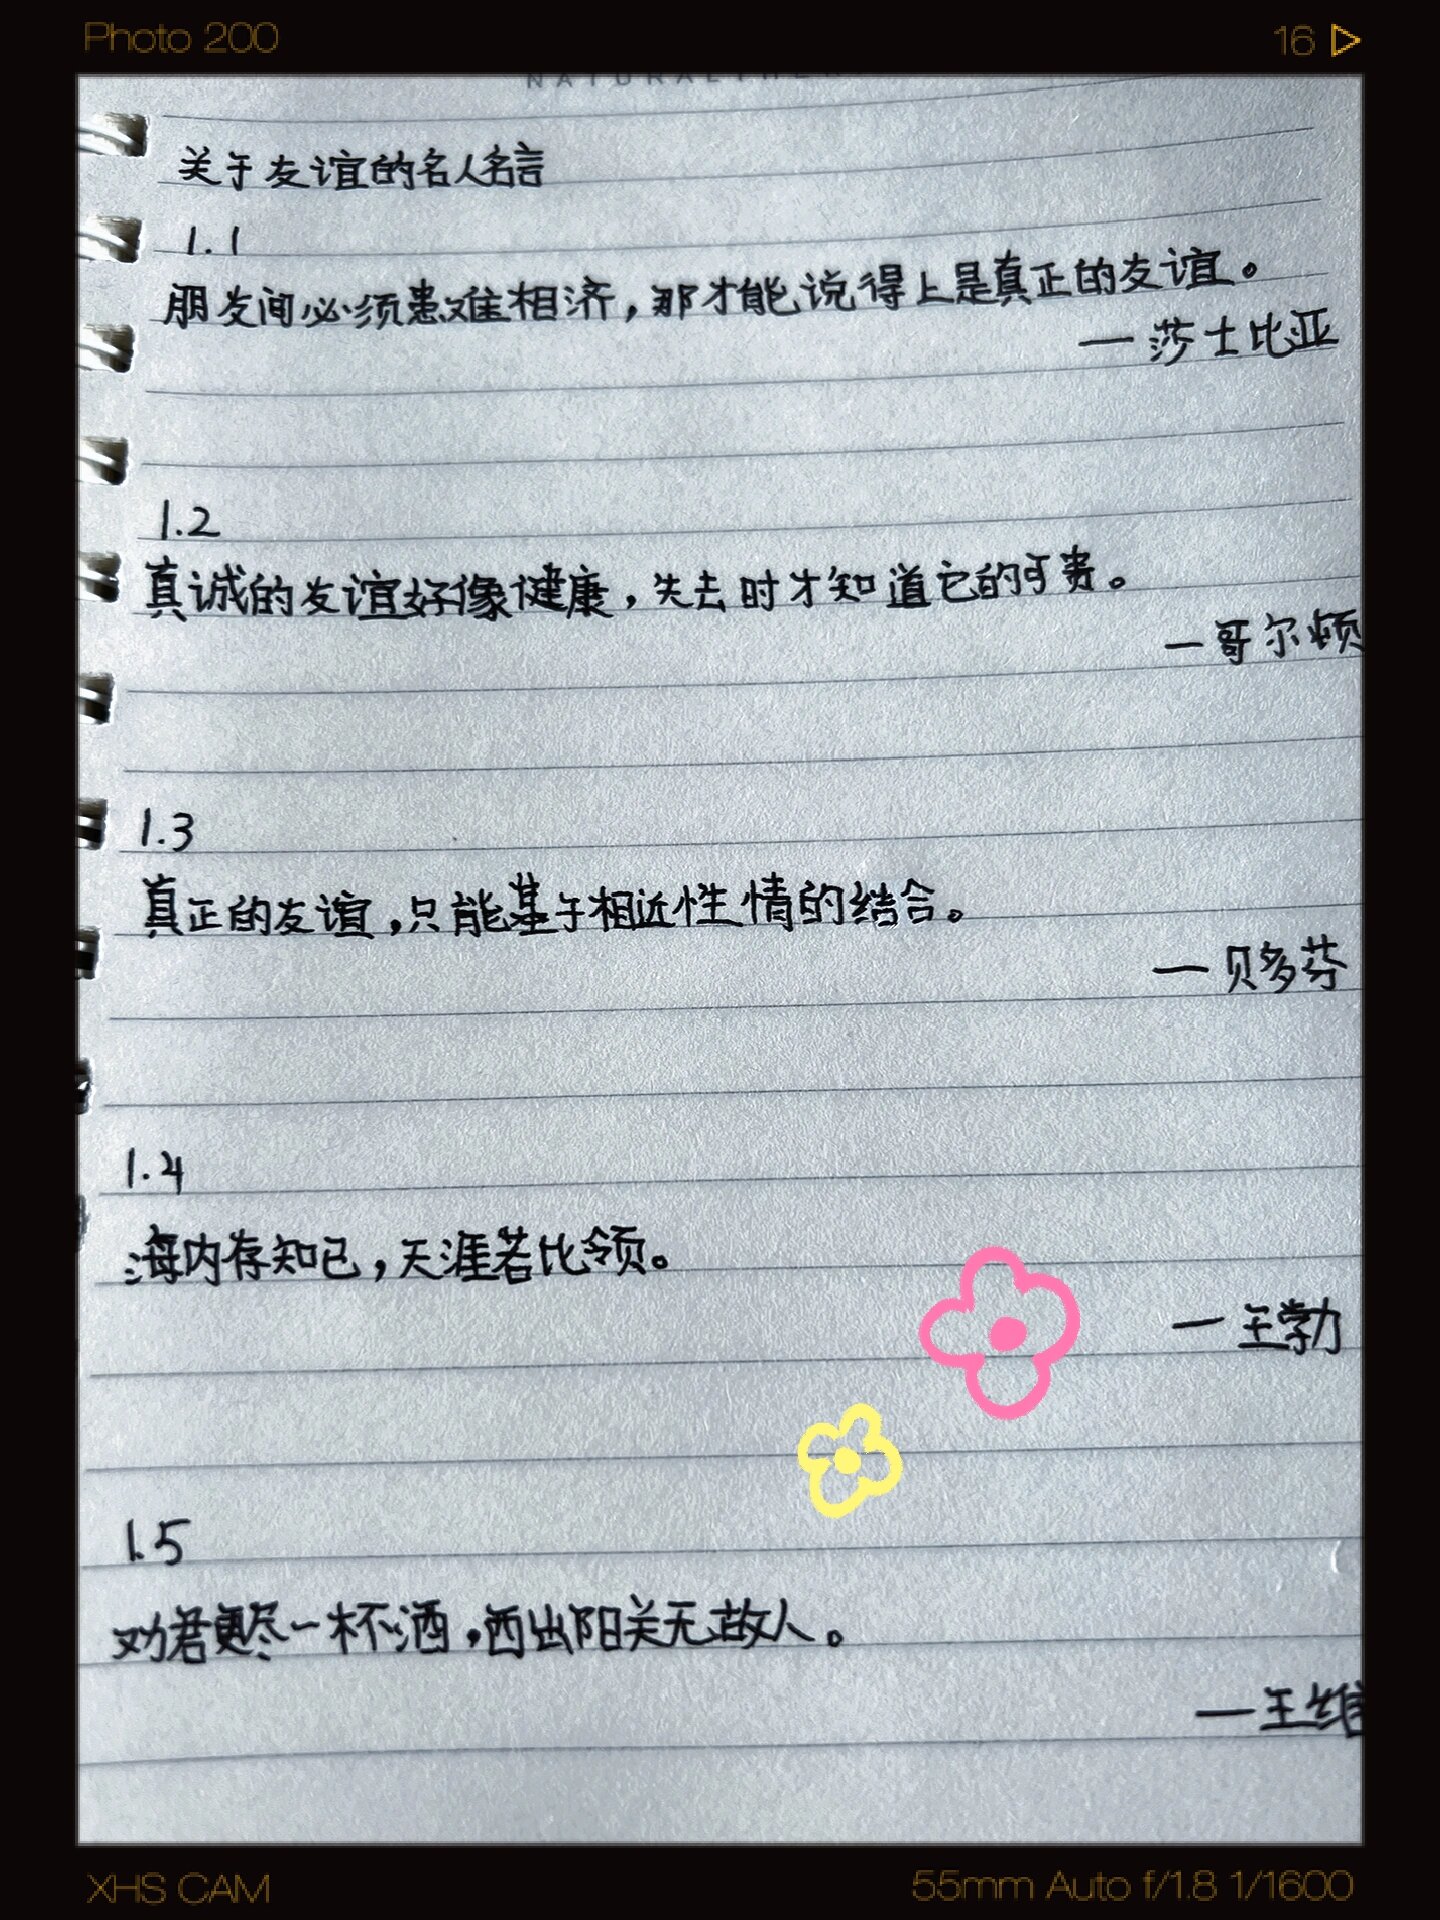 Photo 200
16
NATURAL
关于友谊的名人名言
1.1
朋友间必须患难相济，那才能说得上是真正的友谊。
— 莎士比亚
1.2
真诚的友谊好像健康，失去时才知道它的可贵。
— 哥尔顿
1.3
真正的友谊，只能基于相近性情的结合。
— 贝多芬
1.4
海内存知己，天涯若比领。
— 王勃
1.5
劝君更尽一杯酒，西出阳关无故人。
— 王维
XHS CAM
55mm Auto f/1.8 1/1600